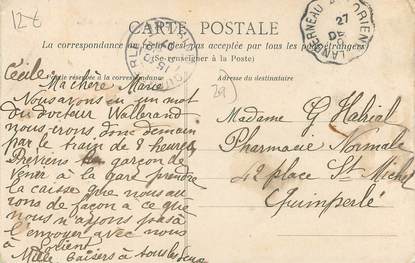 12€
CARTE POSTALE
La correspondance au recto n'est pas acceptée par tous les pays étrangers
(Se renseigner à la Poste)
Partie réservée à la correspondance
Adresse du destinataire
LANDERNEAU A LORIENT
27
29)
Cécile
Ma chère Marie
Nous avons eu un mot
du docteur Wallerand
nous irons donc demain
par le train de 8 heures
Préviens le garçon de
venir à la gare prendre
la caisse que nous au
rons de façon à ce que
nous n'ayons pas à
l'envoyer avec nous
à Lorient
Mille baisers à tous les deux
Madame G Habial
Pharmacie Normale
42 place St Michel
Quimperlé